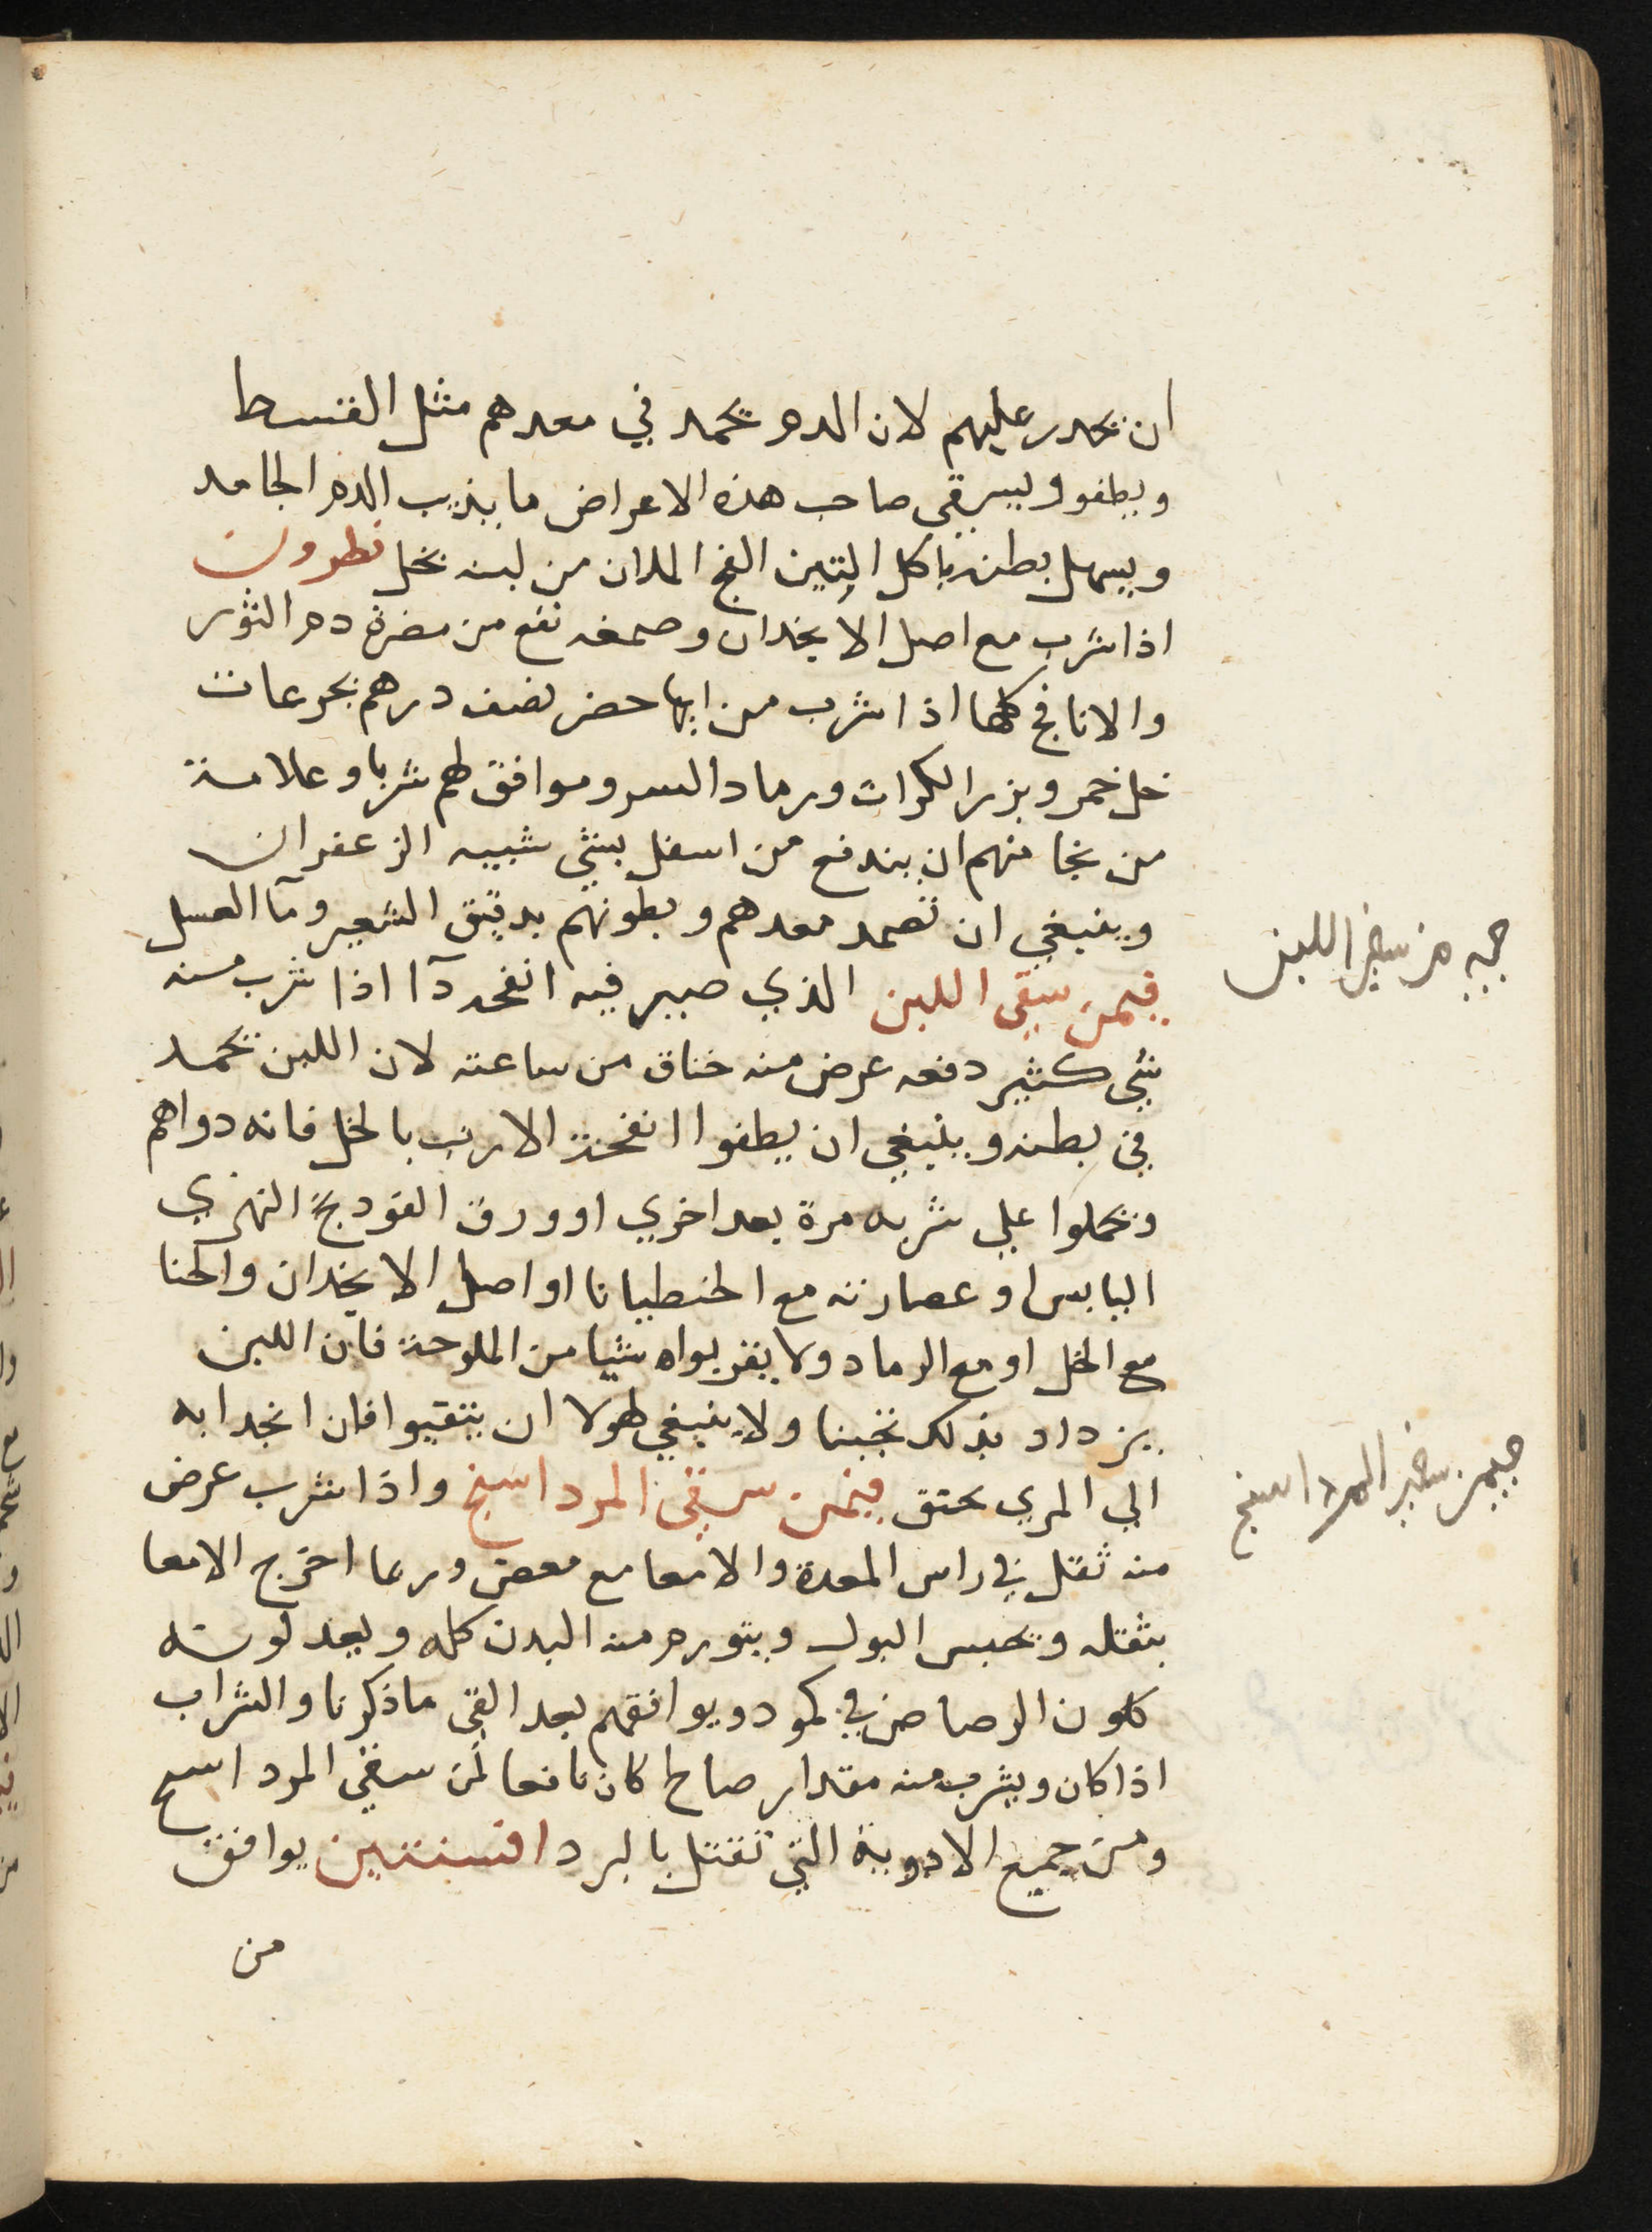 ان يحدر عليهم لان الدم يجمد في معدهم مثل القسط
ويطفوا ويسقي صاحب هذه الاعراض ما يذيب الدم الجامد
ويسهل بطنه باكل التين الفج الملان من لبنه بخل نطرون
اذا شرب مع اصل الانجدان وصمغه نفع من مضرة دم الثور
والانافح كلها اذا شرب من ايها حضر نصف درهم بجرعات
خل خمر وبزر الكراث ورماد السرو موافق لهم شربا وعلامة
من نجا منهم ان يندفع من اسفل بشي شبيه الزعفران
وينبغي ان تضمد معدهم وبطونهم بدقيق الشعير ومآ العسل
فيمن سقي اللبن الذي صير فيه انفحه دآ اذا شرب منه
شي كثير دفعه عرض منه خناق من ساعته لان اللبن يجمد
في بطنه وينبغي ان يطفوا انفحة الارنب بالخل فانه دواهم
ويحملوا علي شربه مرة بعد اخري او ورق الفودنج النهري
اليابس او عصارته مع الحنطيانا او اصل الانجدان والحنا
مع الخل او مع الرماد ولا يقربواه شيا من الملوحة فان اللبن
يزداد بذلك تجبنا ولا ينبغي لهولا ان يتقيوا فان انجدابه
الي المري يحنق فيمن سقي المرداسنج واذا شرب عرض
منه ثقل في راس المعدة والامعا مع مغص وربما اخرج الامعا
بثقله ويحبس البول ويتورم منه البدن كله ويعد لونه
كلون الرصاص في كمود ويوافقهم بعد القي ما ذكرنا والشراب
اذا كان ويشرب منه مقدار صاح كان نافعا لمن سقي المرداسنج
ومن جميع الادوية التي تقتل بالبرد افسنتين يوافق
من
من سقي اللبن
فيمن سقي المرداسنج